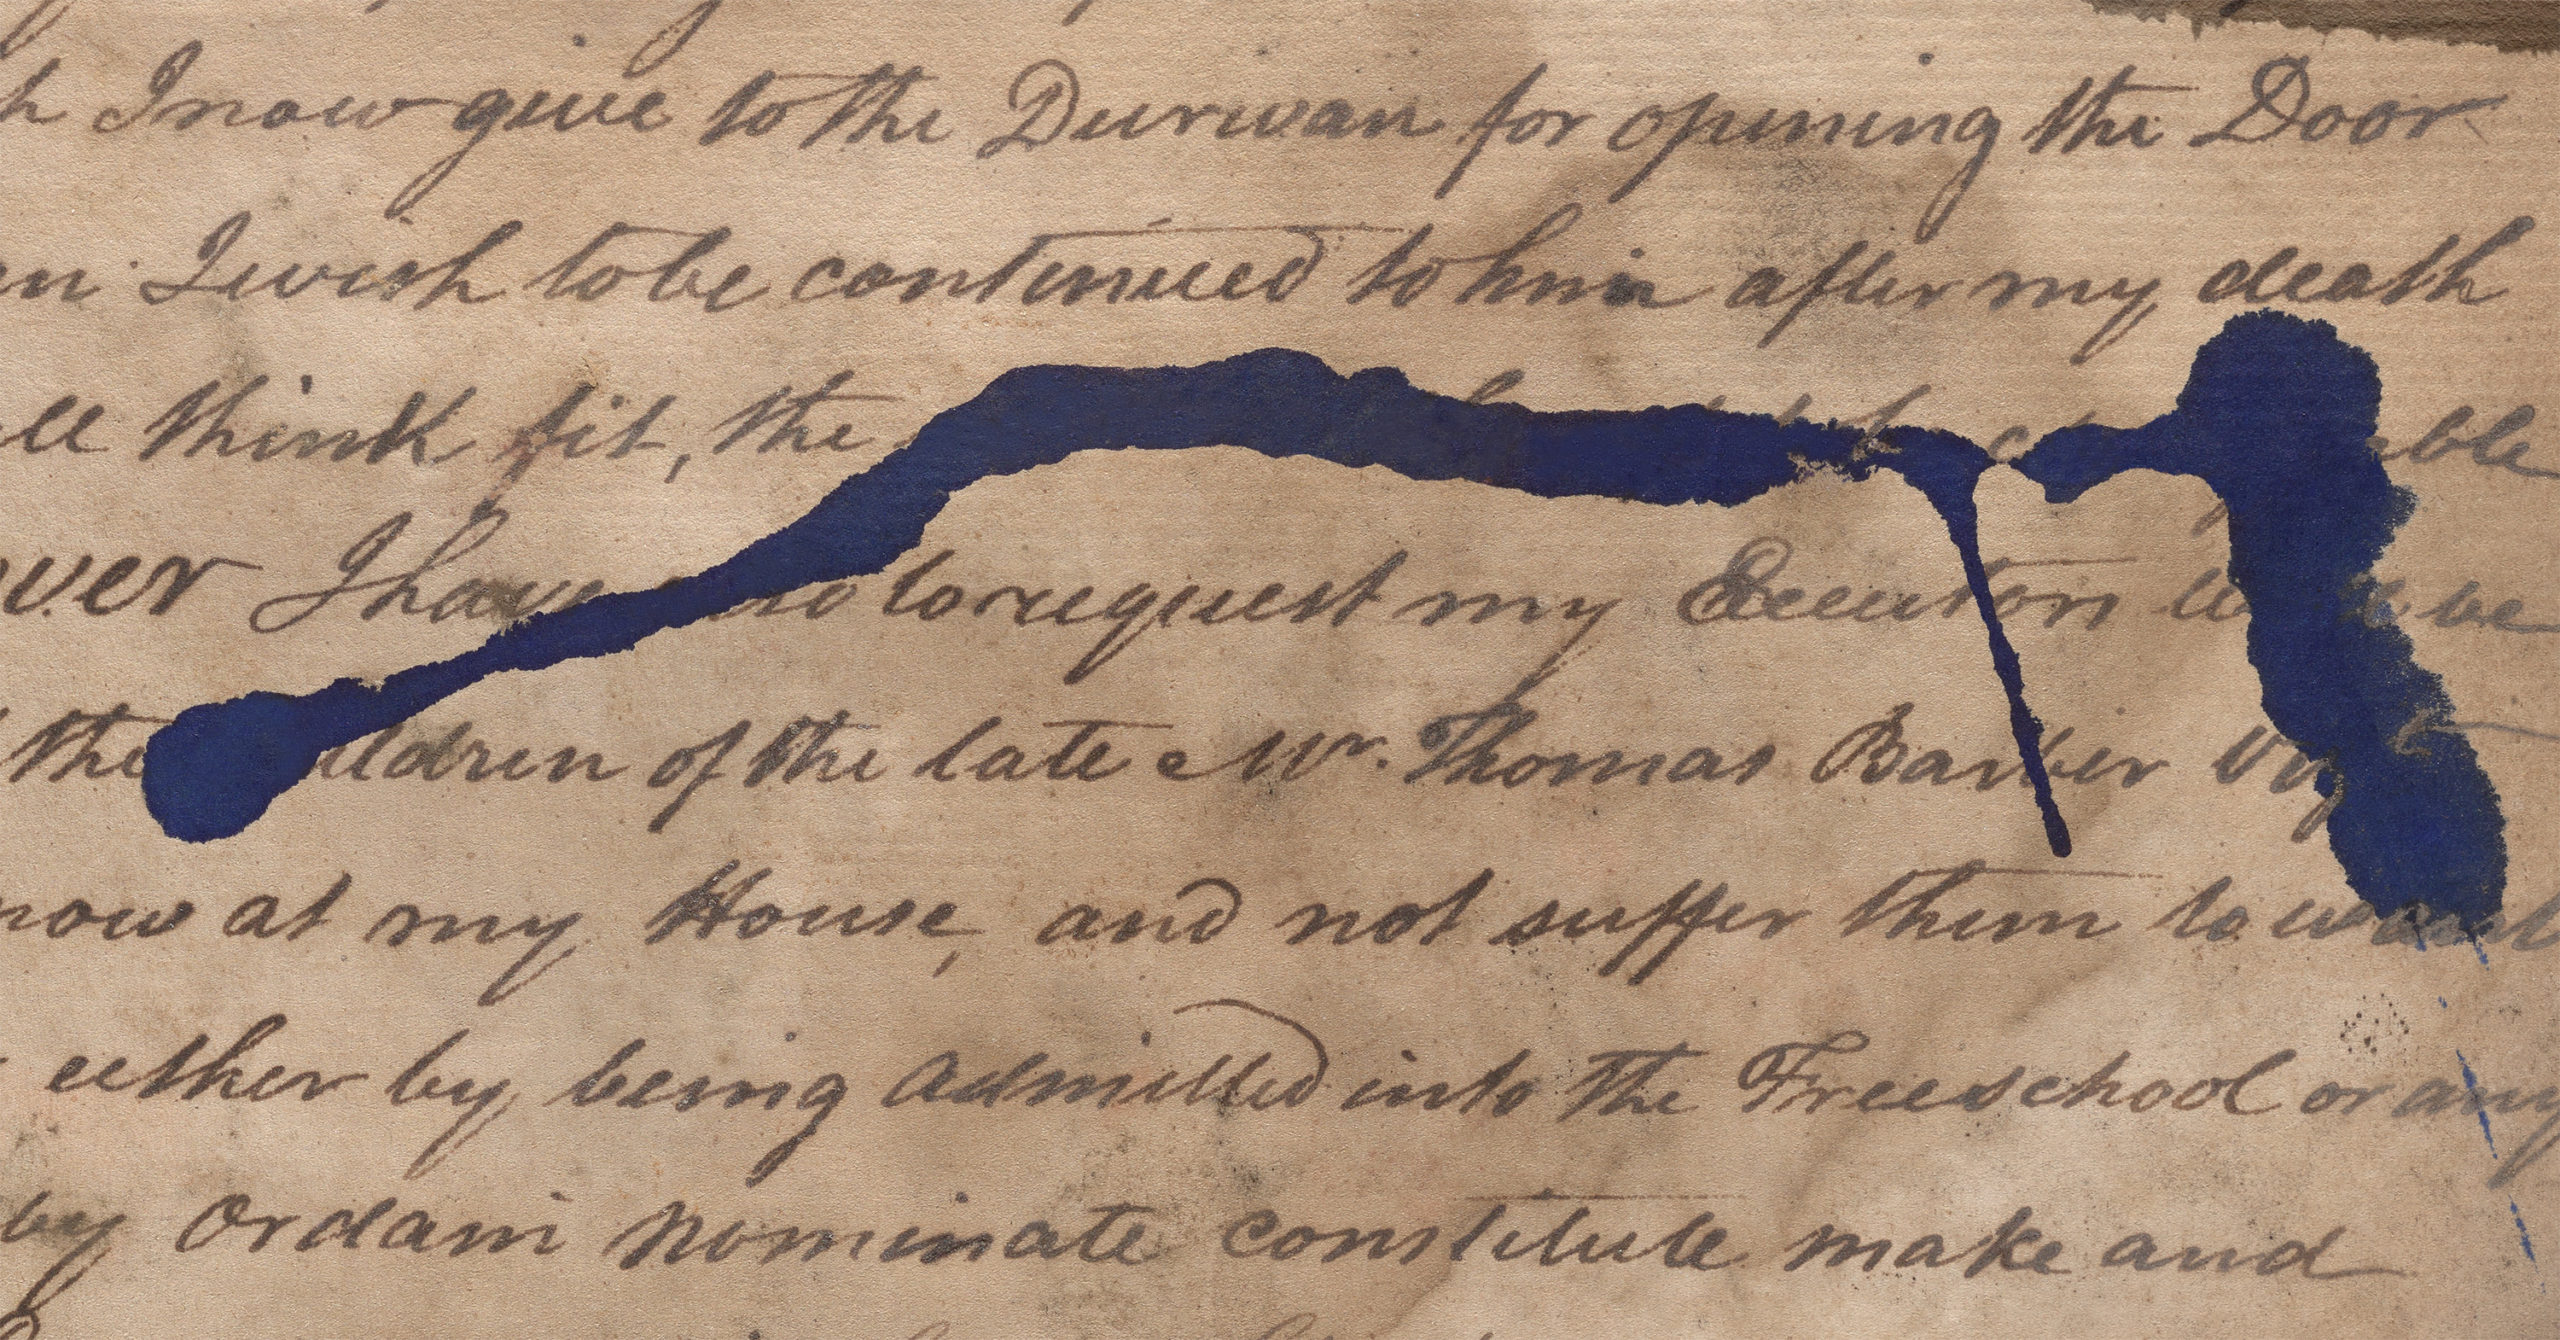 h I now give to the Durwan for opening the Door
I wish to be continued to him after my death
ll think fit, the
ver I have also to request my Executors to be
the children of the late Mr. Thomas Barber
now at my House, and not suffer them to want
either by being admitted into the Freeschool or any
by Ordain nominate constitute make and